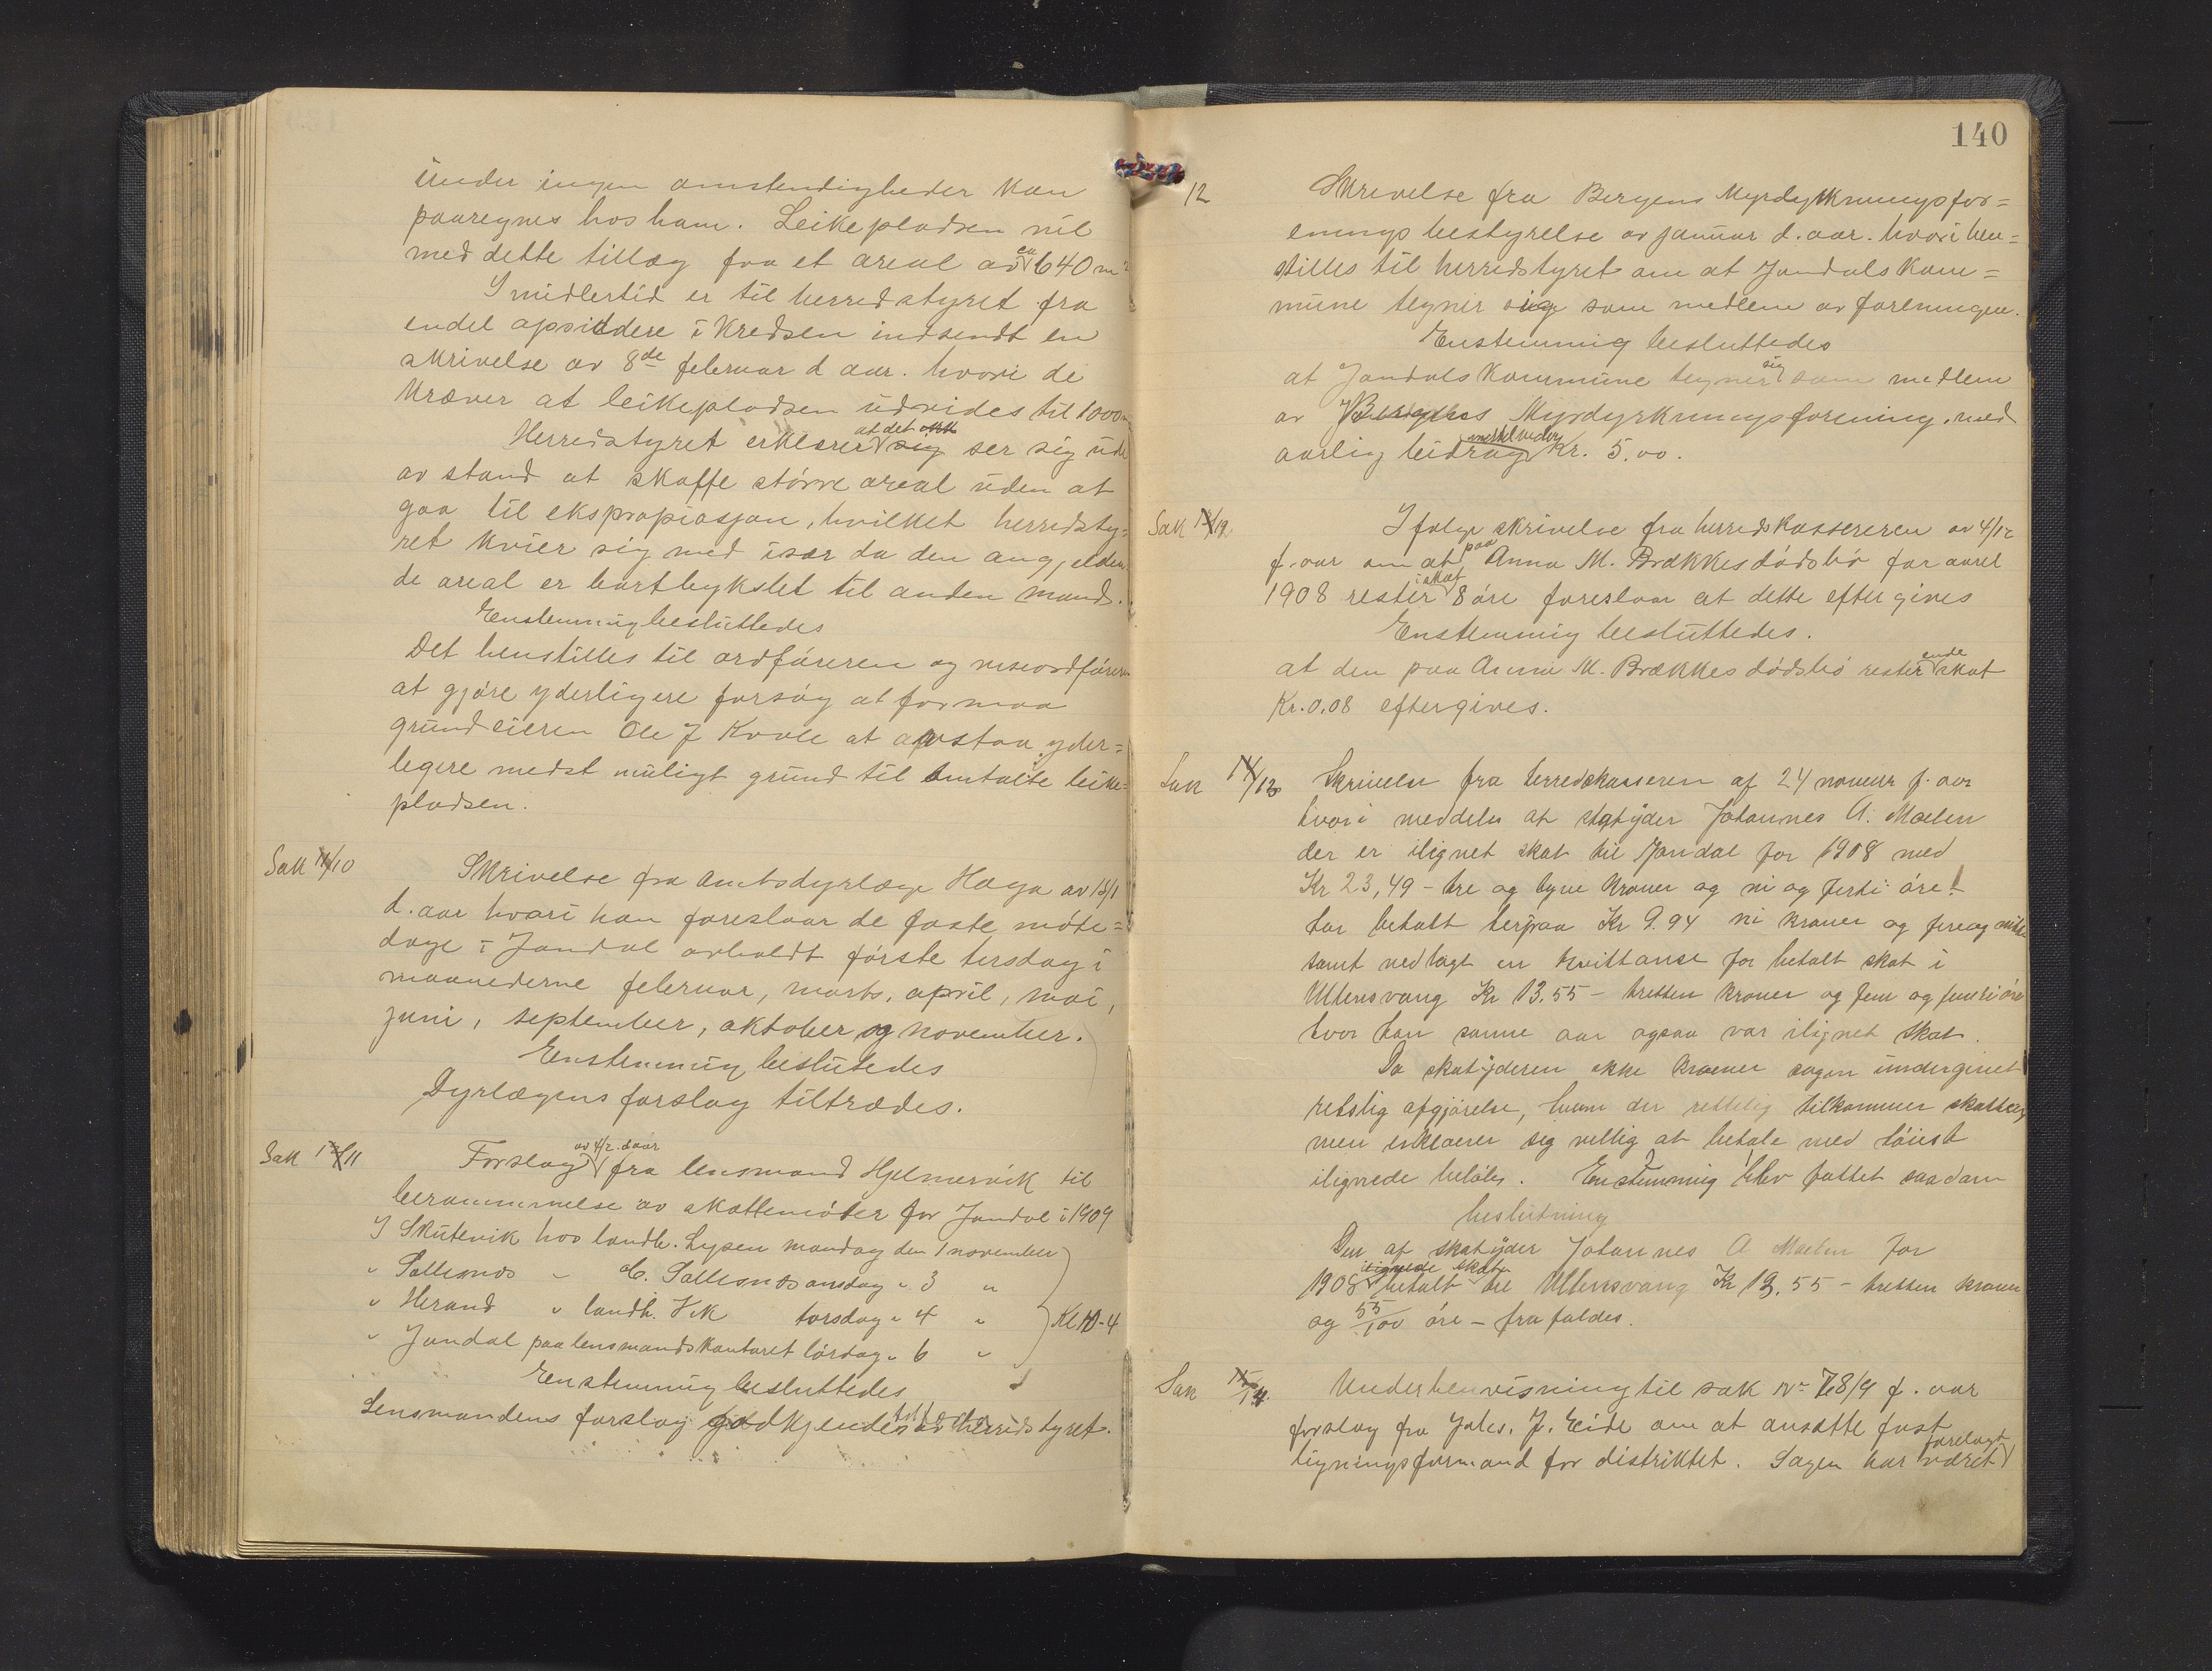 under ingen omstendigheder kan
paaregnes hos ham. Leikepladsen vil
med dette tillæg faa et areal av ca 640 m²
Imidlertid er til herredstyret fra
endel opsiddere i Kredsen indsendt en
skrivelse av 8de februar d aar. hvori de
kræver at leikepladsen udvides til 1000 m
Herredstyret erklærer at det ser sig ude
av stand at skaffe større areal uden at
gaa til ekspropiasjon, hvilket herredsty-
ret kvier sig med især da den angjelden
de areal er bortbykslet til anden mand.
Enstemmig besluttedes
Det henstilles til ordføreren og viseordføreren
at gjøre yderligere forsøg at formaa
grundeieren Ole J Kvale at avstaa yder=
legere medst muligt grund til omtalte leike=
pladsen.
Sak 11/10 Skrivelse fra Amtsdyrlæge Haga av 15/1
d. aar hvori han foreslaar de faste møte=
dage i Jondal avholdt første tirsdag i
maanederne februar, marts, april, mai,
juni, september, oktober og november.
Enstemmig beslutedes
Dyrlægens forslag tiltrædes.
Sak 12/11 Forslag av 4/2. d aar fra lensmand Hjelmervik til
berammelse av skattemøter for Jondal i 1909
I Skutevik hos landh. Lysen mandag den 1 november
" Sollesnes " O. Sollesnes onsdag " 3 "
" Herand " landh. Vik torsdag " 4 " Kl 10-4
" Jondal paa lensmandskontoret lørdag " 6 "
Enstemmig besluttedes
Lensmandens forslag godkjendes av herredstyret.
140
12 Skrivelse fra Bergens Myrdyrkningsfor=
enings bestyrelse av januar d. aar. hvori hen=
stilles til herredstyret om at Jondals kom=
mune tegner sig som medlem av foreningen.
Enstemmig besluttedes
at Jondals kommune tegner sig som medlem
av Bergens Myrdyrkningsforening, med
aarlig bidrag Kr. 5.00.
Sak 13/12. I følge skrivelse fra herredskassereren av 4/12
f. aar om at paa Anna M. Brækkes dødsbo for aaret
1908 rester i skat 8 øre foreslaar at dette eftergives
Enstemmig besluttedes.
at den paa Anna M. Brækkes dødsbo resterende skat
Kr. 0.08 eftergives.
Sak 14/13 Skrivelse fra herredskasseren af 24 novembr f. aar
hvori meddeles at skatyder Johannes A. Mælen
der er ilignet skat til Jondal for 1908 med
Kr 23,49 - tre og tyve Kroner og ni og førti øre!
har betalt herpaa Kr 9.94 ni kroner og fireog nitti
samt vedlagt en kvittanse for betalt skat i
Ullensvang Kr 13.55 - tretten kroner og fem og femti øre
hvor han samme aar ogsaa var ilignet skat.
Da skatyderen ikke kræver sagen undergivet
retslig afgjørelse, hvem der rettelig tilkommer skatten,
men erklærer sig villig at betale med høiest
ilignede beløb. Enstemmig blev fattet saadan
beslutning
Den af skatyder Johannes A Mælen for
1908 ilignede skat betalt til Ullensvang Kr 13,55 - tretten kroner
og 55/100 øre - frafaldes.
Sak 15/14. Under henvisning til sak Nr 78/9 f. aar
forslag fra Johs. J. Eide om at ansætte fast
ligningsformand for distriktet. Sagen har været forelagt